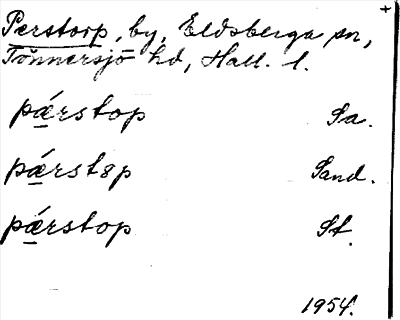 +
Perstorp, by, Eldsberga sn,
Tönnersjö hd, Hall. l.
pá̱rstop Sa.
pá̱rst8p Sand.
pá̱rstop St.
1954.